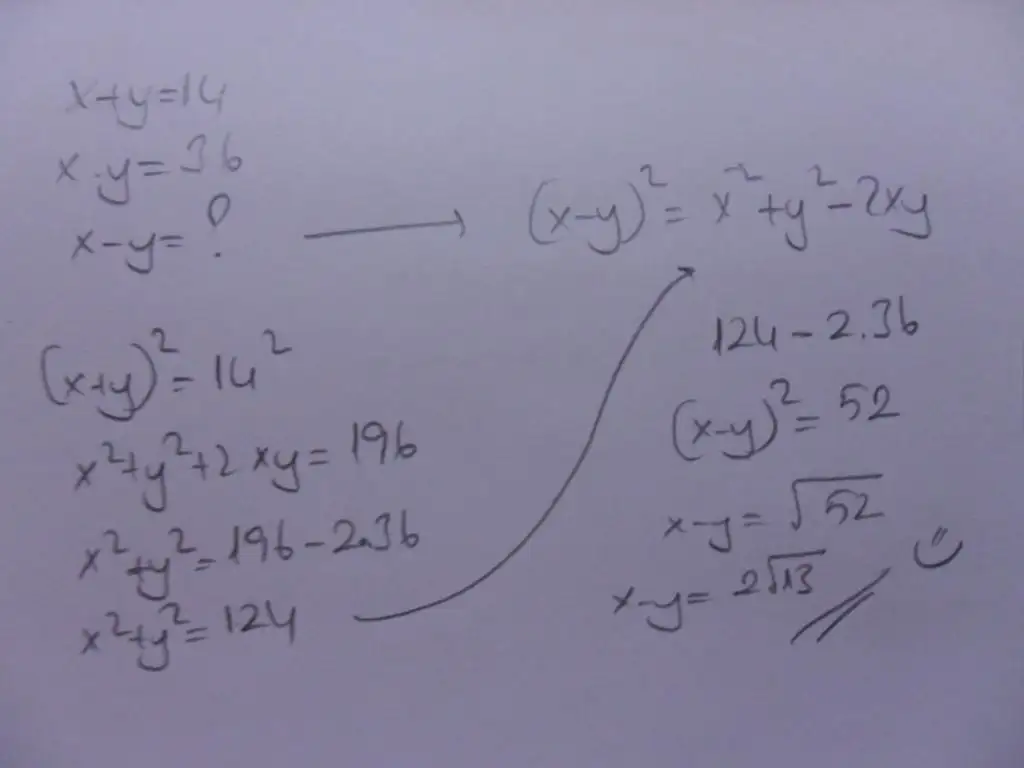 x+y=14
x.y=36
x-y=?
(x-y)²= x²+y²-2xy
(x+y)²=14²
x²+y²+2xy=196
x²+y²=196-2.36
x²+y²=124
124-2.36
(x-y)²=52
x-y=√52
x-y=2√13